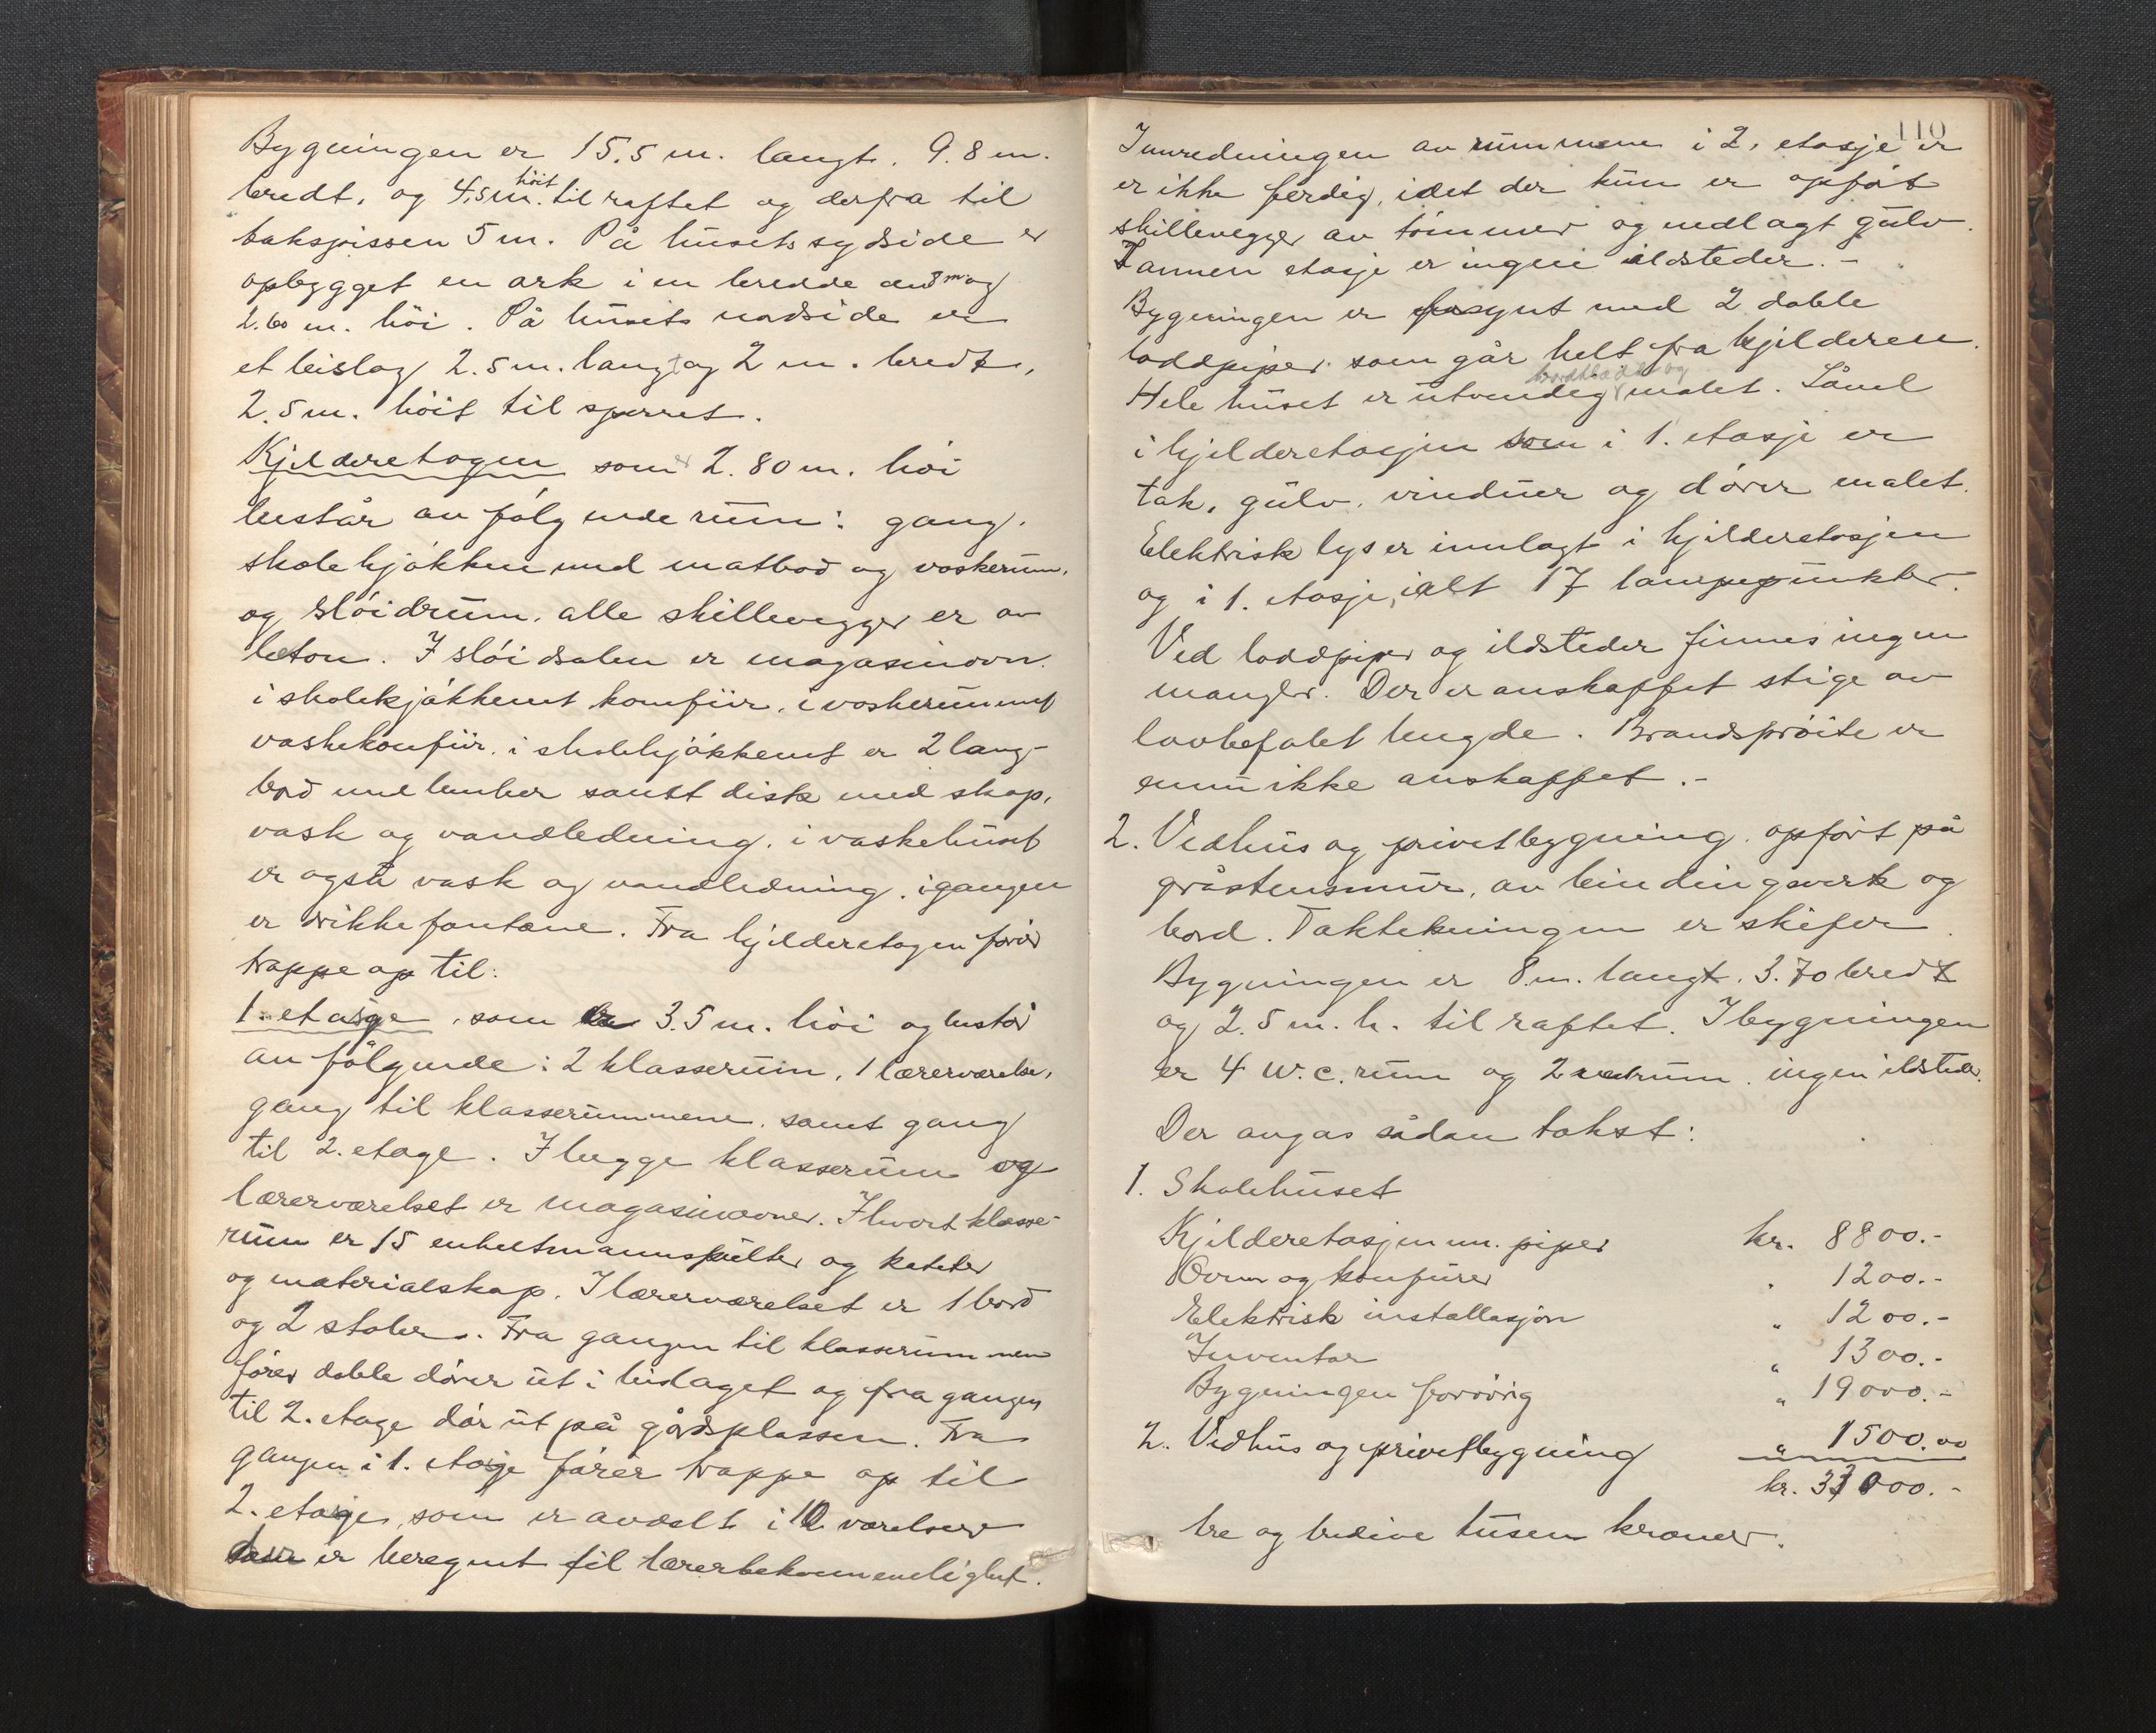 Bygningen er 15.5 m. langt. 9.8 m.
bredt. og 4.5 m. høit til raftet og derfra til
takspissen 5 m. På husets sydside er
opbygget en ark i en bredde av 8 m og
2.60 m. høi. På husets nordside er
et bislag 2.5 m. langt og 2 m. bredt,
2.5 m. höit til sperret.
Kjilderetagen som er 2.80 m. höi
består av fölgende rum: gang.
skolekjøkken med matbod og vaskerum,
og slöidrum. alle skillevegger er av
beton. I slöidsalen er magasinovn.
i skolekjøkkenet komfür. i vaskerummet
vaskekomfür. i skolekjøkkenet er 2 lang-
bord med benker samt disk med skap,
vask og vandledning. i vaskehuset
er også vask og vandledning. i gangen
er drikkefontæne. Fra kjilderetagen förer
trappe op til:
1. etasge, som er 3.5 m. höi og består
av fölgende: 2 klasserum, 1 lærerværelse,
gang til klasserummene. samt gang
til 2. etage. I begge klasserum og
lærerværelset er magasinovner. I hvert klasse-
rum er 15 enkeltmannspulter og kateter
og materialskap. I lærerværelset er 1 bord
og 2 stoler. Fra gangen til klasserummene
förer doble dörer ut i bislaget og fra gangen
til 2. etage dör ut på gårdsplassen. Fra
gangen i 1. etasje förer trappe op til
2. etasje, som er avdelt i 10 værelser
som er beregnet til lærerbekvemmelighet.
110
Innredningen av rummene i 2. etasje er
er ikke ferdig, idet der kun er opfört
skillevegger av tömmer og nedlagt gulv.
I annen etasje er ingen ildsteder.-
Bygningen er forsynt med 2 doble
loddpiper. som går helt fra kjilderen.
bordklædt og
Hele huset er utvendig malet. Såvel
i kjilderetasjen som i 1. etasje er
tak, gulv, vinduer og dörer malet.
Elektrisk lys er innlagt i kjilderetasjen
og i 1. etasje, ialt 17 lampepunkter.
Ved loddpiper og ildsteder finnes ingen
mangler. Der er anskaffet stige av
lovbefalet lengde. Brandspröite er
ennu ikke anskaffet.-
2. Vedhus og privetbygning. opfört på
gråstensmur, av bindingsverk og
bord. Taktekningen er skifer.
Bygningen er 8 m. langt. 3.70 bredt
og 2.5 m. h. til raftet. I bygningen
er 4 w.c. rum og 2 vedrum. ingen ildsteder.
Der avgas sådan takst:
1. Skolehuset
Kjilderetasjen m. piper kr. 8800.-
Ovner og komfurer " 1200.-
Elektrisk installasjon " 1200.-
Inventar " 1300.-
Bygningen forövrig " 19000.-
2. Vedhus og privetbygning " 1500.00
kr. 33000.-
tre og tredive tusen kroner.